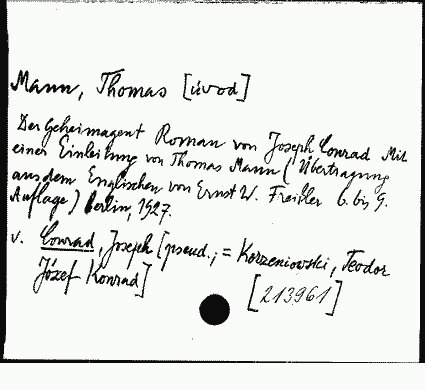 Mann, Thomas [úvod]
Der Geheimagent Roman von Joseph Conrad Mit
einer Einleitung von Thomas Mann (Übertragung
aus dem Englischen von Ernst W. Freißler 6. bis 9.
Auflage) Berlin, 1927.
v. Conrad, Joseph [pseud.; = Korzeniowski, Teodor
Józef Konrad]
[213961]